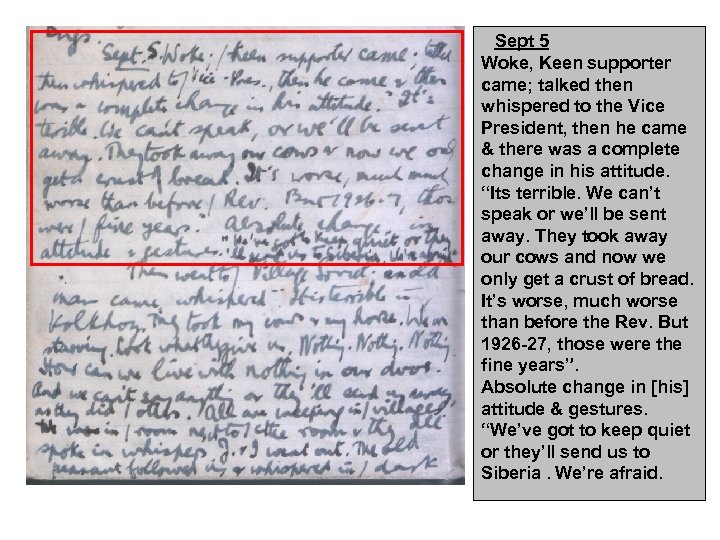 Days.
Sept. 5. Woke; / Keen supporter came; talked
then whispered to / Vice-Pres., then he came & ther
was a complete change in his attitude. "It's
terrible. We can't speak, or we'll be sent
away. They took away our cows & now we only
get a crust / bread. It's worse, much much
worse than before / Rev. But 1926-7, those
were / fine years." Absolute change in
attitude & gestures. "We've got to keep quiet or they'll
send us to Siberia. We're afraid."
Then went to / Village Soviet. an old
man came, whispered "It is terrible in
Kolkhoz. They took my cows & my horse. We are
starving. Look what they give us. Nothing. Nothg. Nothing.
How can we live with nothing in our dvor.
And we can't say anything or they'll send us away
as they did / others." All are weeping in / villages.
We were in / room next to / ctee room & they all
spoke in whispers. J. & I went out. The old
peasant followed us & whispered in / dark
Sept 5
Woke, Keen supporter
came; talked then
whispered to the Vice
President, then he came
& there was a complete
change in his attitude.
“Its terrible. We can’t
speak or we’ll be sent
away. They took away
our cows and now we
only get a crust of bread.
It’s worse, much worse
than before the Rev. But
1926-27, those were the
fine years”.
Absolute change in [his]
attitude & gestures.
“We’ve got to keep quiet
or they’ll send us to
Siberia . We’re afraid.